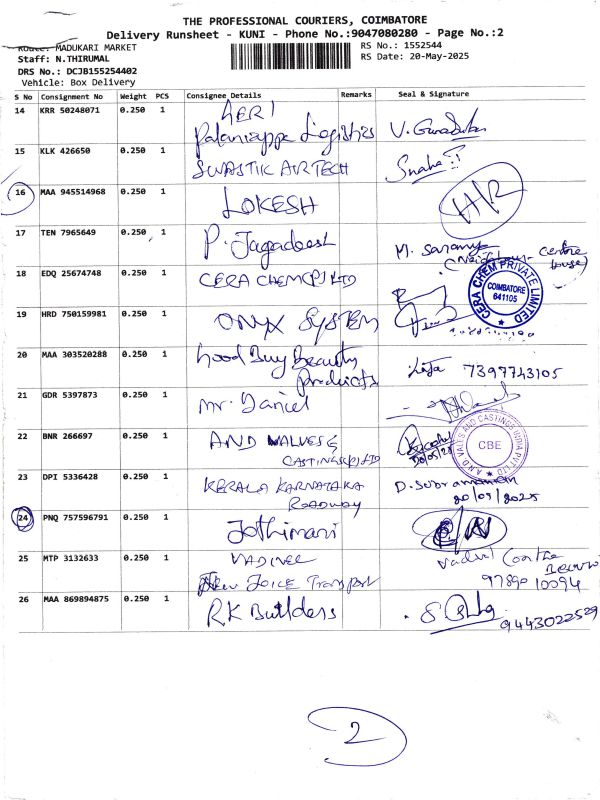 THE PROFESSIONAL COURIERS, COIMBATORE
Delivery Runsheet - KUNI - Phone No.:9047080280 - Page No.:2
Route: MADUKARI MARKET
RS No.: 1552544
Staff: N.THIRUMAL
RS Date: 20-May-2025
DRS No.: DCJB155254402
Vehicle: Box Delivery
S No Consignment No Weight PCS Consignee Details Remarks Seal & Signature
14 KRR 50248071 0.250 1
Palaniappa Logistics
15 KLK 426650 0.250 1 SWASTIK AIRTECH Sneha
16 MAA 945514968 0.250 1 LOKESH
17 TEN 7965649 0.250 1 P. Jagadeesh M.
18 EDQ 25674748 0.250 1 CERA CHEM(P) LTD
CERA CHEM PRIVATE LIMITED
COIMBATORE
641105
19 HRD 750159981 0.250 1 ONYX SYSTEM
20 MAA 303520288 0.250 1 Good Buy Beauty 7397743105
products
21 GDR 5397873 0.250 1 Mr. Daniel
22 BNR 266697 0.250 1 AND VALVES &
CASTINGS(P)LTD 20/05/25
AND VALVES AND CASTINGS INDIA PVT LTD
CBE
23 DPI 5336428 0.250 1 KERALA KARNATAKA D. Subramaniam
ROADWAY 20/05/2025
24 PNQ 757596791 0.250 1 Jothimani
25 MTP 3132633 0.250 1 VADIVEL
New JOICE Transport 97890 10094
26 MAA 869894875 0.250 1 RK Builders
9443022529
2